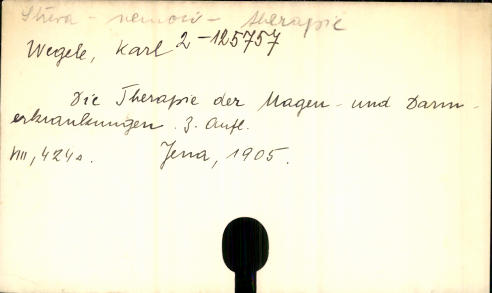 Střeva - nemoci - therapie
Wegele, Karl 2-125757
Die Therapie der Magen- und Darm-
erkrankungen. 3. Aufl.
VIII, 424 s. Jena, 1905.